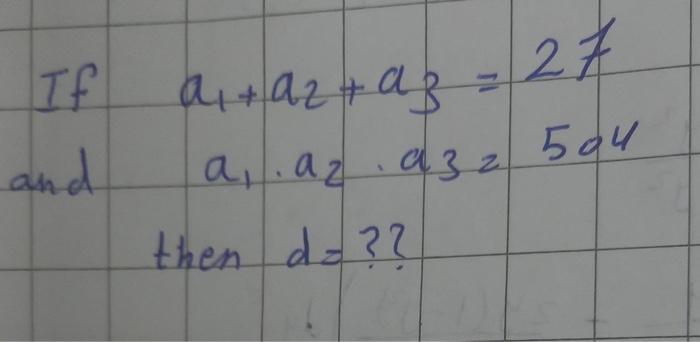 If a₁ + a₂ + a₃ = 27
and a₁ . a₂ . a₃ = 504
then d = ??